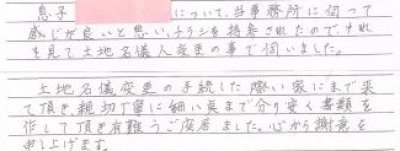 息子 について、当事務所に伺って
感じが良いと思い、チラシを拝見されたので、それ
を見て土地名儀人変更の事で伺いました。
土地名儀変更の手続した際い家にまで来
て頂き、親切丁寧に細い点まで分り安く書類を
作して頂き有難うご座居ました。心から謝意を
申し上げます。